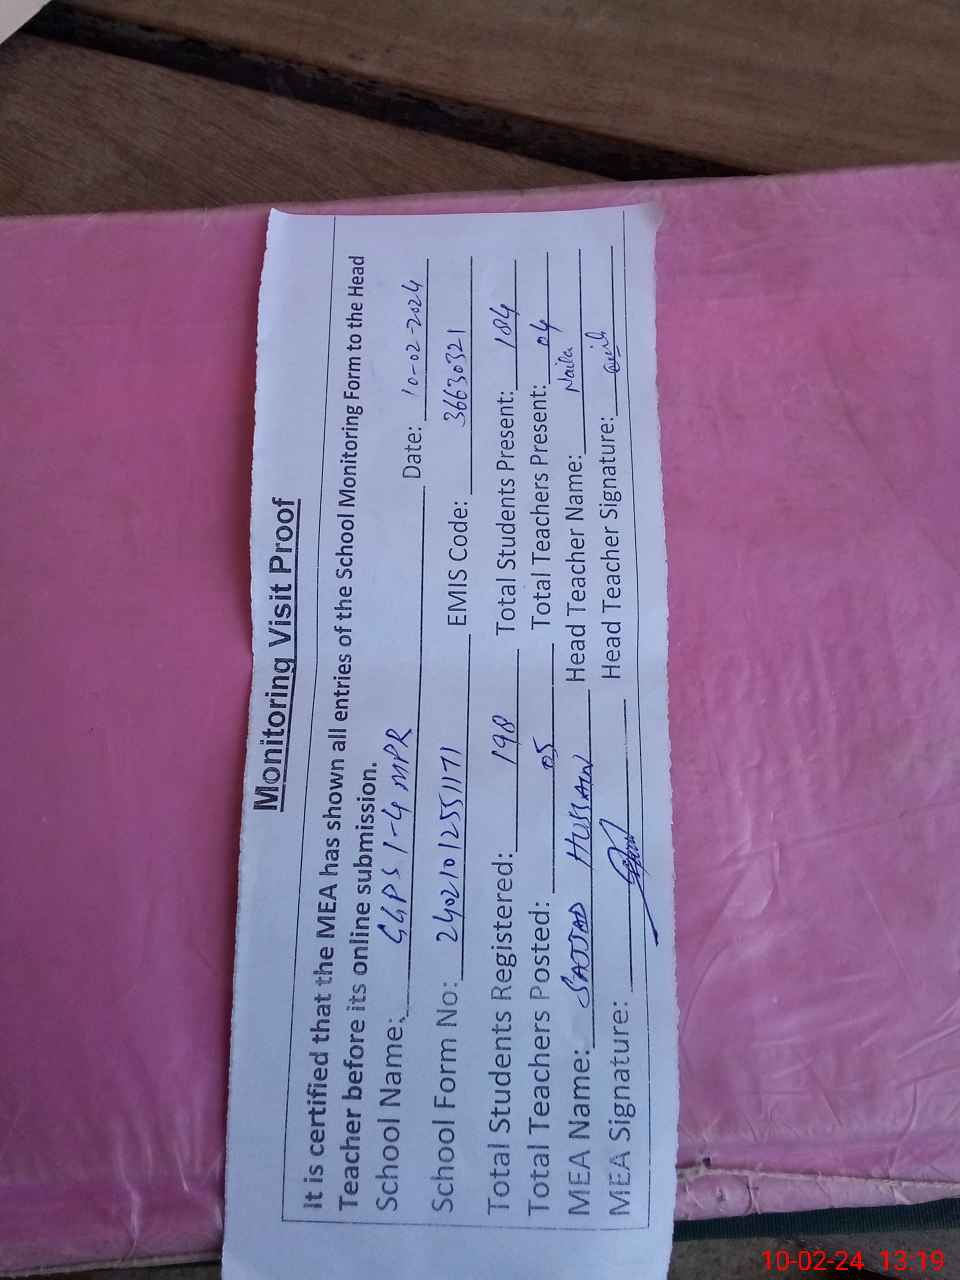 Monitoring Visit Proof
It is certified that the MEA has shown all entries of the School Monitoring Form to the Head
Teacher before its online submission.
School Name: GGPS 1-4 MPR Date: 10-02-2024
School Form No: 24021012551171 EMIS Code: 36630321
Total Students Registered: 198 Total Students Present: 184
Total Teachers Posted: 05 Total Teachers Present: 04
MEA Name: SAJJAD HUSSAIN Head Teacher Name: Naila
MEA Signature: Head Teacher Signature:
10-02-24 13:19